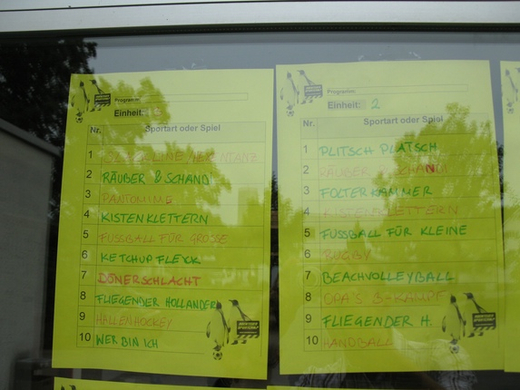 Programm:
Einheit:
Nr. Sportart oder Spiel
1
2 RÄUBER & SCHANDI
3 PANTOMIME
4 KISTENKLETTERN
5 FUSSBALL FÜR GROSSE
6 KETCHUP FLEXX
7 DÖNERSCHLACHT
8 FLIEGENDER HOLLÄNDER
9 HALLENHOCKEY
10 WER BIN ICH
Programm:
Einheit: 2
Nr. Sportart oder Spiel
1 PLITSCH PLATSCH
2 RÄUBER SCHANDI
3 FOLTERKAMMER
4 KISTENKLETTERN
5 FUSSBALL FÜR KLEINE
6 RUGBY
7 BEACHVOLLEYBALL
8 OPA'S
9 FLIEGENDER H.
10 HANDBALL